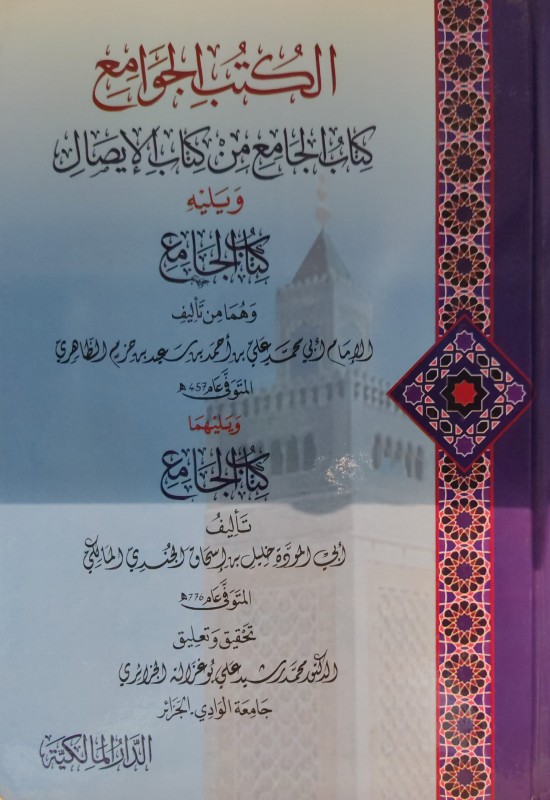 الكُتُبُ الجَوَامِع
كِتَابُ الجَامِعِ مِنْ كِتَابِ الإِيصَالِ
وَيَلِيْهِ
كِتَابُ الجَامِعِ
وَهُمَا مِن تَأْلِيفِ
الإمام أبي محمد علي بن أحمد بن سعيد بن حزم الظاهري
المتوفَّى عام 457هـ
وَيَلِيْهُمَا
كِتَابُ الجَامِعِ
تَأليفُ
أبي المودّة خليل بن إسحاق الجُندي المالكي
المتوفَّى عام 776هـ
تحقيق وتعليق
الدكتور محمد رشيد علي بوغزالة الجزائري
جامعة الوادي - الجزائر
الدَّارُ المَالِكِيَّة